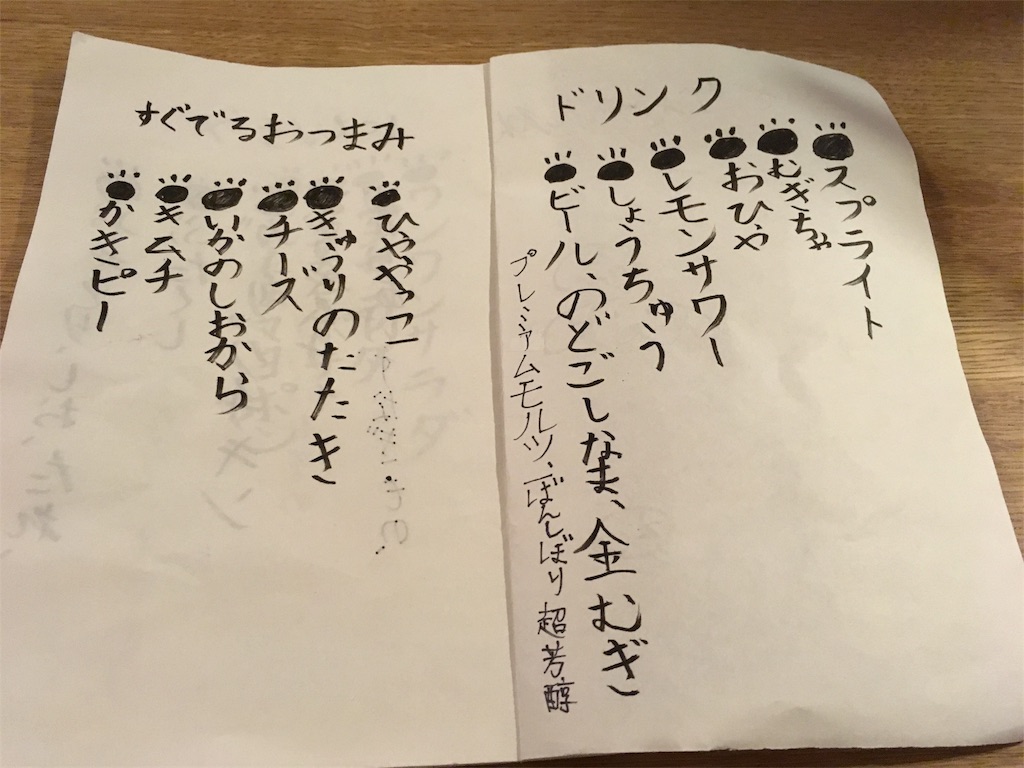 ドリンク
スプライト
むぎちゃ
おひや
レモンサワー
しょうちゅう
ビール、のどごしなま、金むぎ
プレミアムモルツ、ぼんぼり 超芳醇
すぐでるおつまみ
ひややっこ
きゅうりのたたき
チーズ
いかのしおから
キムチ
かきピー